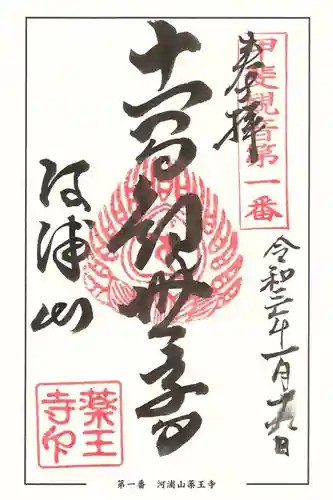 甲斐観音第一番
奉拝
令和二年一月十九日
十一面観世音
河浦山
薬王
寺印
第一番　河浦山薬王寺